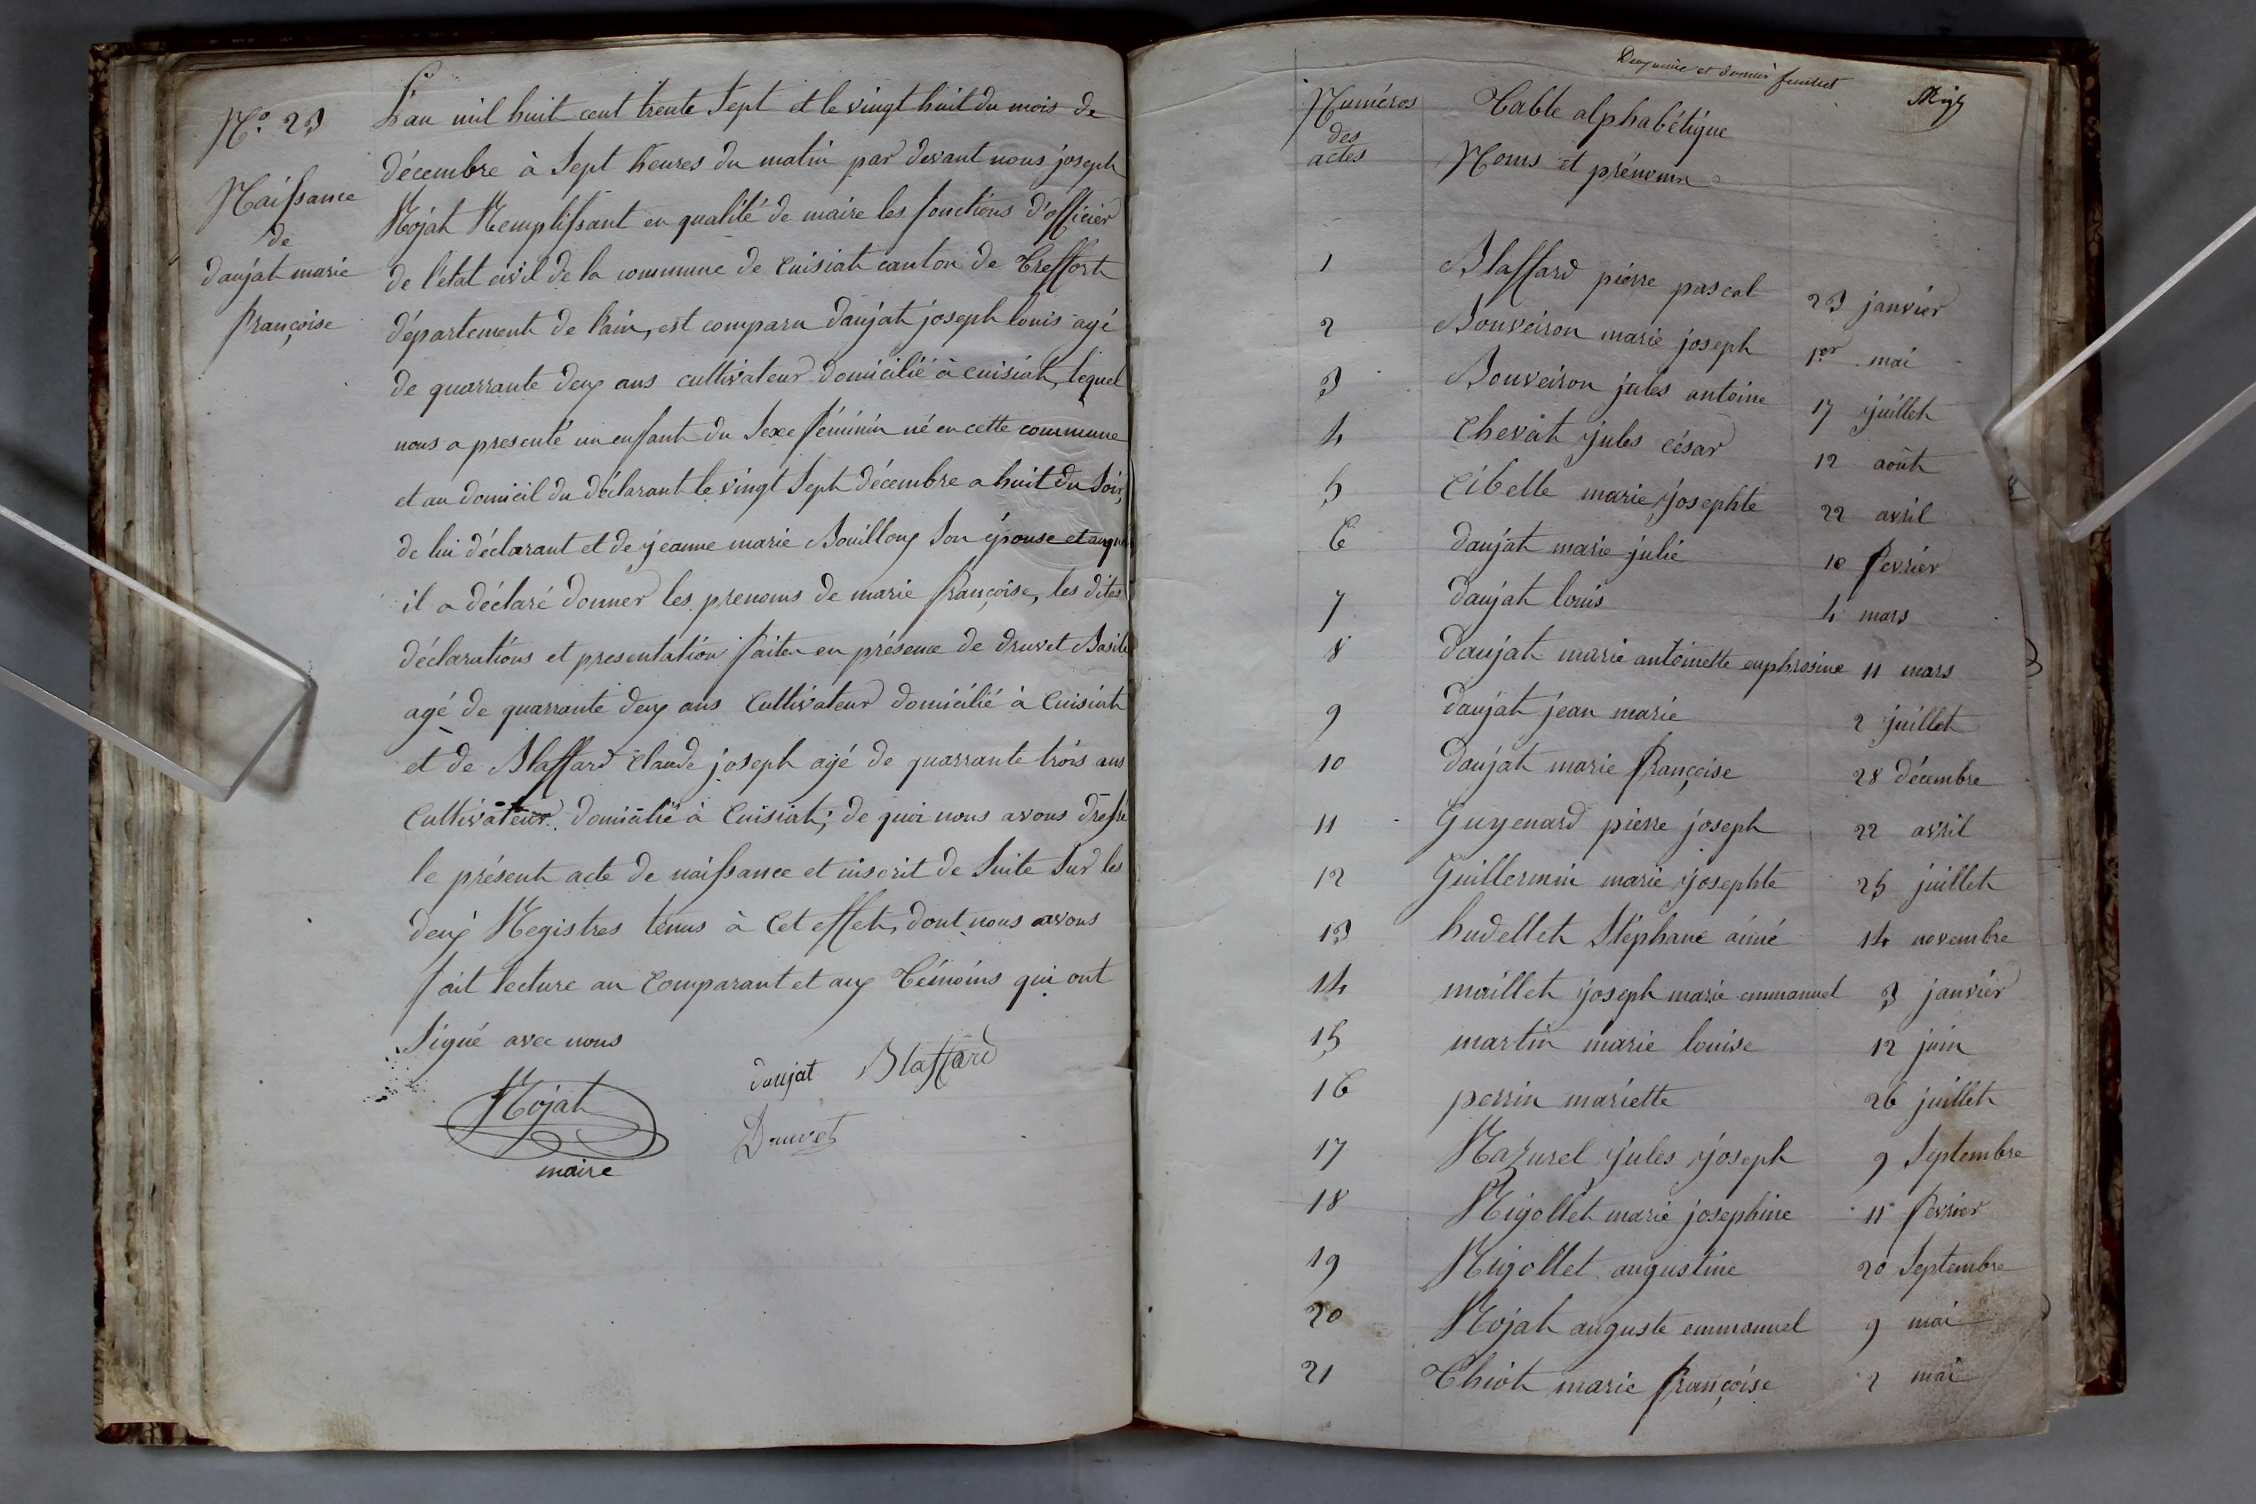 N.° 23
Naissance
de
daujat marie
françoise
L'an mil huit cent trente Sept et le vingt huit du mois de
décembre à Sept heures du matin par devant nous joseph
Rojat Remplissant en qualité de maire les fonctions d'officier
de l'état civil de la commune de Cuisiat canton de Treffort
département de l'ain, est comparu daujat joseph louis agé
de quarrante deux ans cultivateur domicilié à cuisiat, lequel
nous a presenté un enfant du Sexe féminin né en cette commune
et au domicil du déclarant le vingt Sept décembre a huit du Soir,
de lui déclarant et de jeanne marie Bouilloux Son épouse et auquel
il a déclaré donner les prenoms de marie françoise, les dites
déclarations et presentation faites en présence de druvet Basile
agé de quarrante deux ans Cultivateur domicilié à Cuisiat
et de Blaffard Claude joseph agé de quarrante trois ans
Cultivateur domicilié à Cuisiat; de quoi nous avons dressé
le présent acte de naissance et inscrit de Suite Sur les
deux Registres tenus à Cet effet, dont nous avons
fait lecture au Comparant et aux Témoins qui ont
Signé avec nous
daujat Blaffard
Rojat
Druvet
maire
Deuxième et dernier feuillet
Numéros
des
actes
Table alphabétique
Noms et prénoms
1 Blaffard pierre pascal 23 janvier
2 Bouveiron marie joseph 1er mai
3 Bouveiron jules antoine 17 juillet
4 Chevat jules césar 12 août
5 Cibelle marie josephte 22 avril
6 daujat marie julie 10 fevrier
7 daujat louis 4 mars
8 daujat marie antoinette euphrosine 11 mars
9 daujat jean marie 2 juillet
10 daujat marie françoise 28 décembre
11 Guyenard pierre joseph 22 avril
12 Guillermin marie josephte 25 juillet
13 hudellet Stéphane aimé 14 novembre
14 maillet joseph marie emmanuel 3 janvier
15 martin marie louise 12 juin
16 perrin mariette 26 juillet
17 Razurel jules joseph 9 Septembre
18 Rigollet marie josephine 11 fevrier
19 Rigollet augustine 20 Septembre
20 Rojat auguste emmanuel 9 mai
21 Thiot marie françoise 2 mai